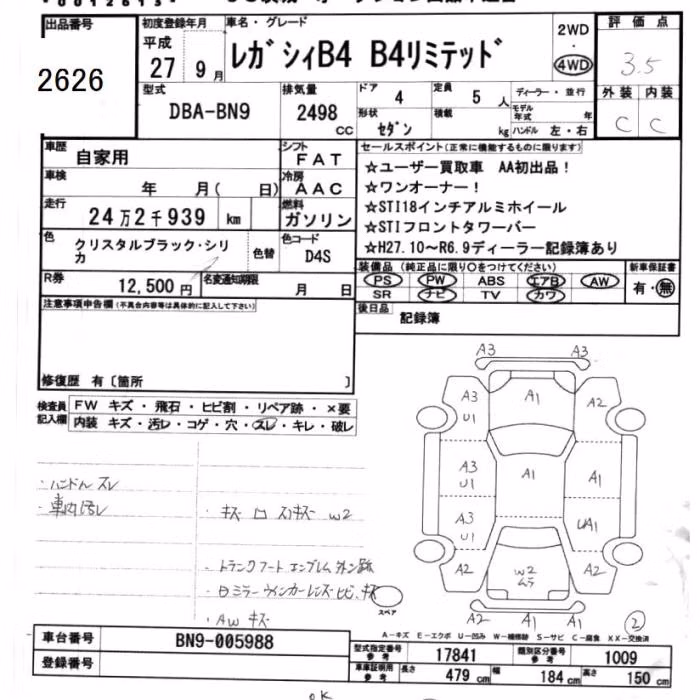 出品番号
2626
初度登録年月
平成
27年 9月
車名・グレード
レガシィB4 B4リミテッド
2WD
・
4WD
評価点
3.5
外装 内装
C C
型式
DBA-BN9
排気量
2498
CC
ドア
4
形状
セダン
定員
5人
積載
kg
ディーラー・並行
モデル年式 年
ハンドル 左・右
車歴
自家用
シフト
FAT
車検
年 月( 日)
冷房
AAC
走行
24万2千939 km
燃料
ガソリン
色
クリスタルブラック・シリカ
色替
色コード
D4S
R券
12,500円
名変通知期限
月 日
セールスポイント(正常に機能するものに限ります)
☆ユーザー買取車 AA初出品!
☆ワンオーナー!
☆STI18インチアルミホイール
☆STIフロントタワーバー
☆H27.10~R6.9ディーラー記録簿あり
装備品(純正品に限り○をつけてください)
PS PW ABS エアB AW
SR ナビ TV カワ
新車保証書
有・無
後日品
記録簿
注意事項申告欄(不具合内容等は具体的に記入して下さい)
修復歴 有〔箇所 〕
検査員記入欄
FW キズ・飛石・ヒビ割・リペア跡・×要
内装 キズ・汚レ・コゲ・穴・スレ・キレ・破レ
・ハンドルスレ
・車内汚レ
・キズ 凹 スリキズ W2
・トランクフード エンブレム外シ跡
・Dミラーウィンカーレンズヒビ、キズ
・AW キズ
A3 A3
A3 U1 A1 A2
A3 U1 A1 A1
A3 U1 UA1
A2 W2 ムラ A2
A2 A1 A1
スペア
2
A-キズ E-エクボ U-凹み W-補修跡 S-サビ C-腐食 XX-交換済
車台番号
BN9-005988
登録番号
型式指定番号 参考
17841
類別区分番号 参考
1009
車庫証明用 参考
長さ 479 cm 幅 184 cm 高さ 150 cm
OK